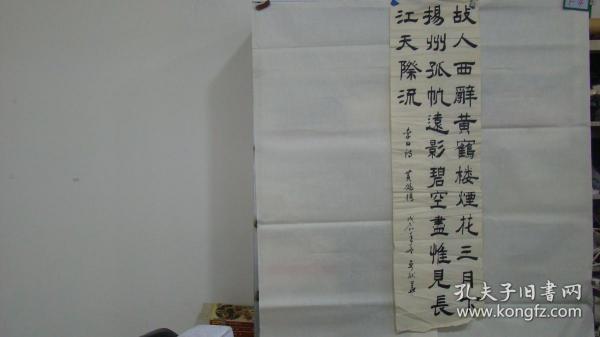 故人西辭黃鶴楼煙花三月下
揚州孤帆遠影碧空盡惟見長
江天際流
李白诗 黃鶴楼
孔夫子旧书网
www.kongfz.com